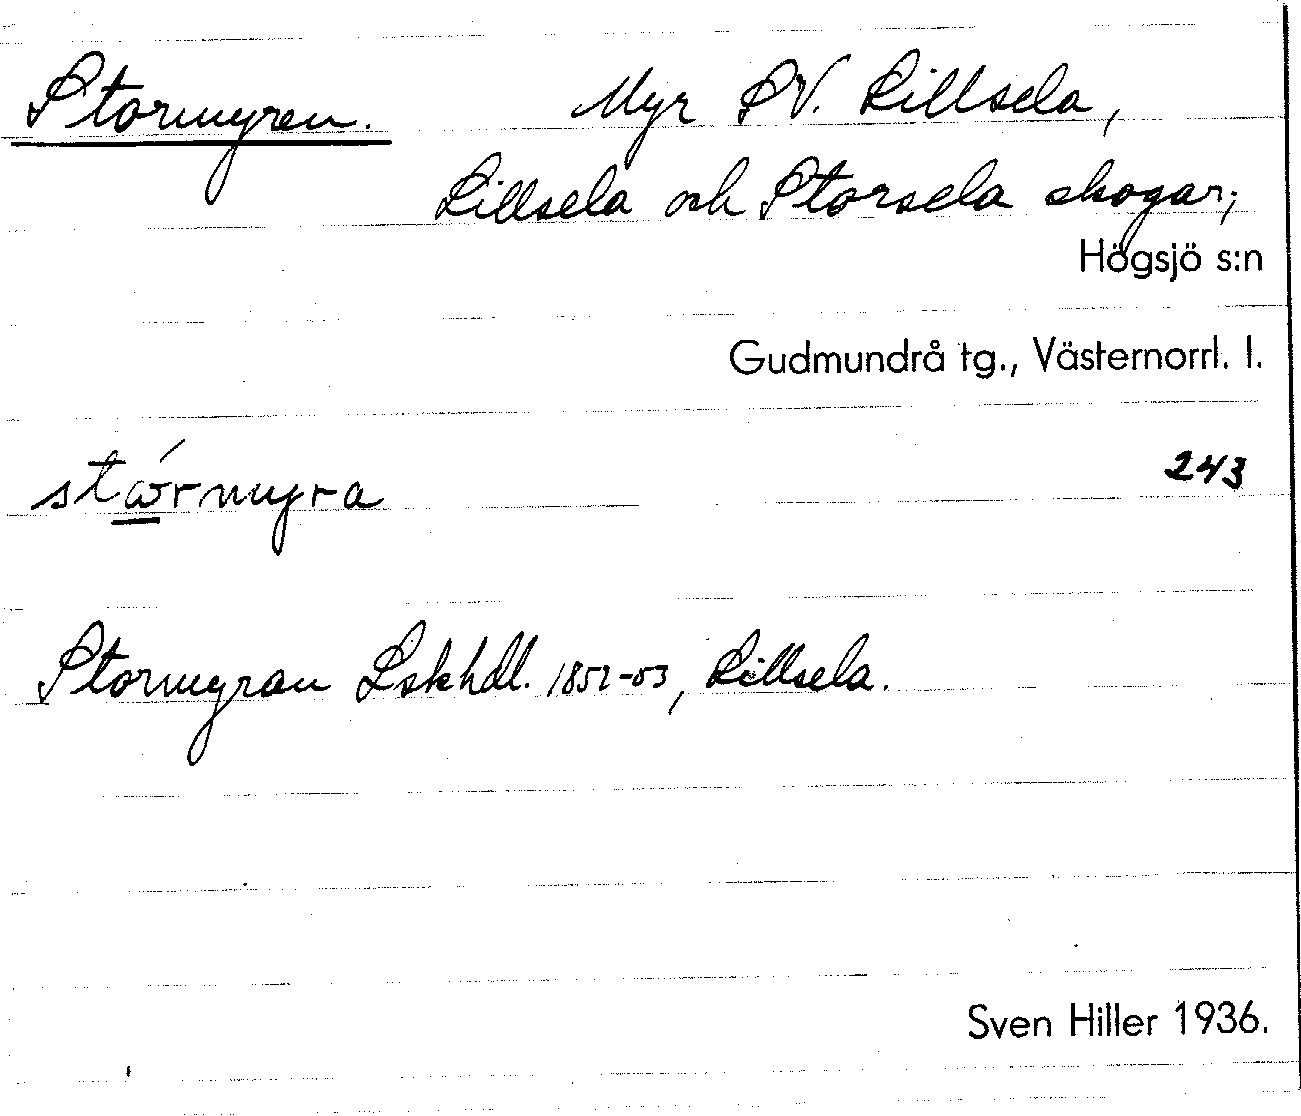 Stormyren. Myr SV. Lillsela,
Lillsela och Storsela skogar;
Högsjö s:n
Gudmundrå tg., Västernorrl. l.
243
Stormyran Lskhdl. 1852-53, Lillsela.
Sven Hiller 1936.